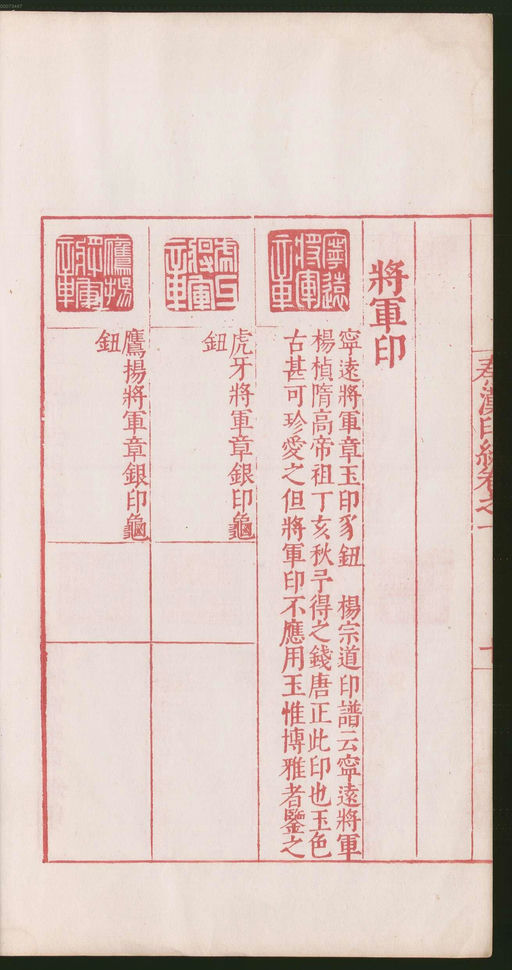 00073447
秦漢印統卷之一
將軍印
寧遠將軍章
寧遠將軍章玉印豸鈕　楊宗道印譜云寧遠將軍
楊楨隋高帝祖丁亥秋予得之錢唐正此印也玉色
古甚可珍愛之但將軍印不應用玉惟博雅者鑒之
虎牙將軍章
虎牙將軍章銀印龜
鈕
鷹揚將軍章
鷹揚將軍章銀印龜
鈕